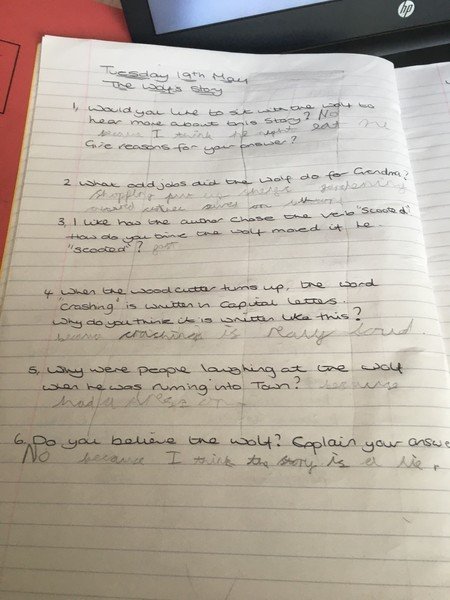 hp
Tuesday 19th May
The Wolf's Story
1, Would you like to sit with the wolf to
hear more about this story? No
because I think he might eat me
Give reasons for your answer?
2 What odd jobs did the Wolf do for Grandma?
Shopping put up shelfs gardening
3, I like how the author chose the verb "scooted".
How do you the wolf moved if he
"scooted"?
4 When the woodcutter turns up, the word
'crashing' is written in Capital letters.
Why do you think it is written like this?
crashing is really loud.
5. Why were people laughing at the wolf
when he was running into Town? because
had a dress on
6. Do you believe the wolf? Explain your answe
No because I think the story is a lie.